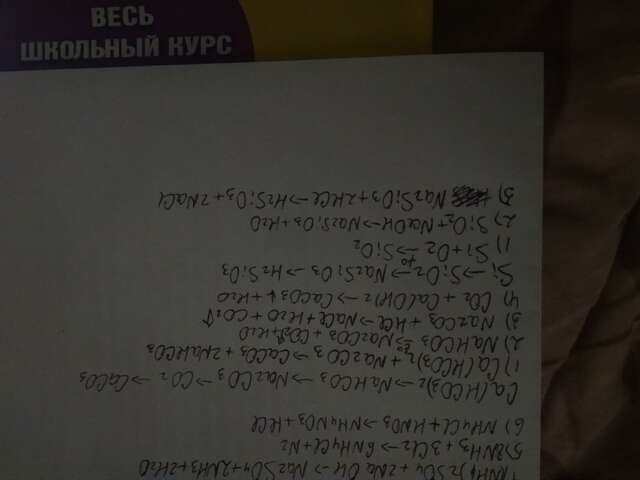 ВЕСЬ
ШКОЛЬНЫЙ КУРС
NH4)2SO4+2NaOH→Na2SO4+2NH3+2H2O
5)8NH3+3Cl2→6NH4Cl+N2
6) NH4Cl+HNO3→NH4NO3+HCl
Ca(HCO3)2→NaHCO3→Na2CO3→CO2→CaCO3
1) Ca(HCO3)2+Na2CO3→CaCO3+2NaHCO3
2) NaHCO3 t°→ Na2CO3+CO2↑+H2O
3) Na2CO3+HCl→NaCl+H2O+CO2↑
4) CO2+Ca(OH)2→CaCO3↓+H2O
Si→SiO2→Na2SiO3→H2SiO3
1) Si+O2 t°→ SiO2
2) SiO2+NaOH→Na2SiO3+H2O
3) Na2SiO3+2HCl→H2SiO3+2NaCl